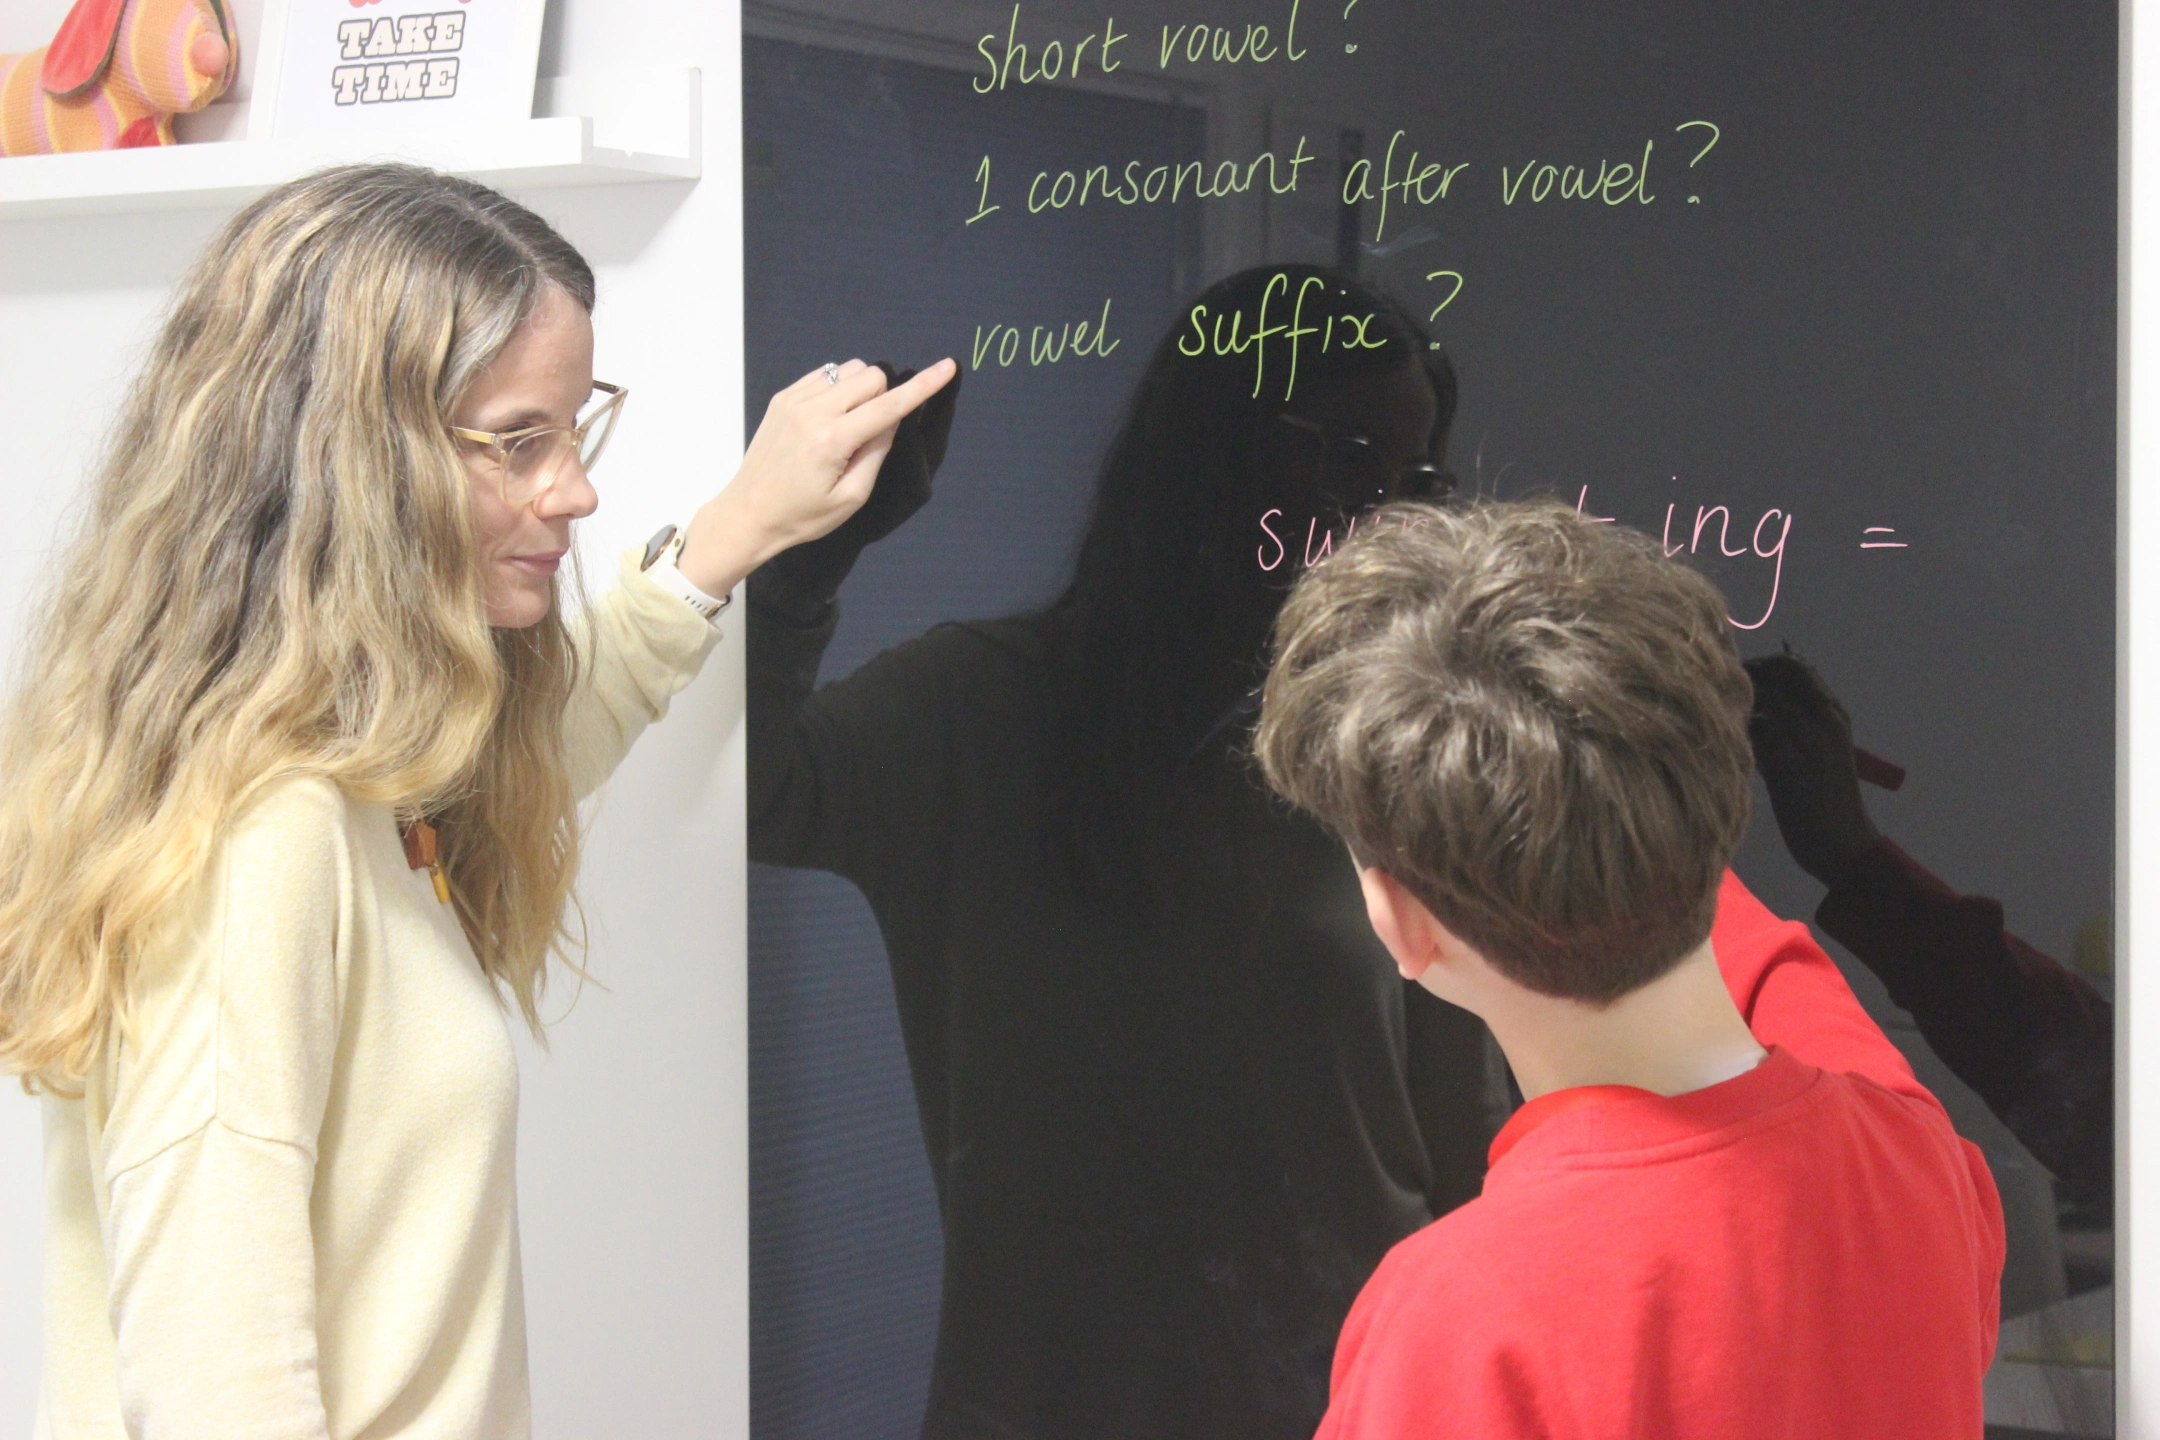 TAKE
TIME
short vowel?
1 consonant after vowel?
vowel suffix?
+ ing =